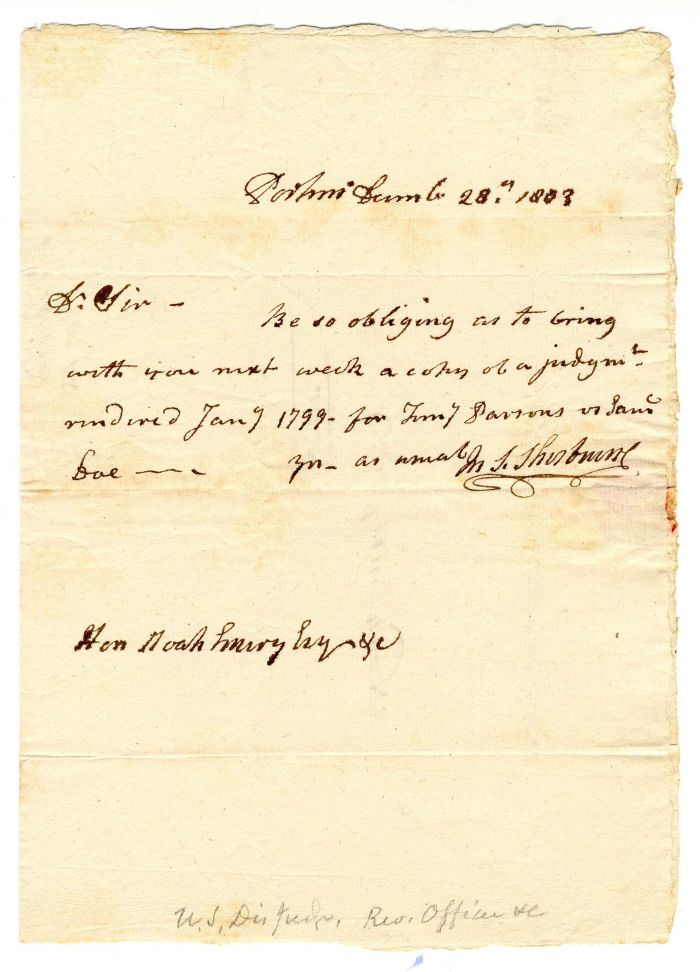 Portsmo Decemb 28.th 1803
Dr. Sir - Be so obliging as to bring
with you next week a copy of a judgmt.
rendered Jany 1799 - for Timy Parsons vs Saml
Doe — yrs - as usual J S. Sherburne
Hon Noah Emery Esq &c
U.S. Dis Judge, Rev. Officer &c